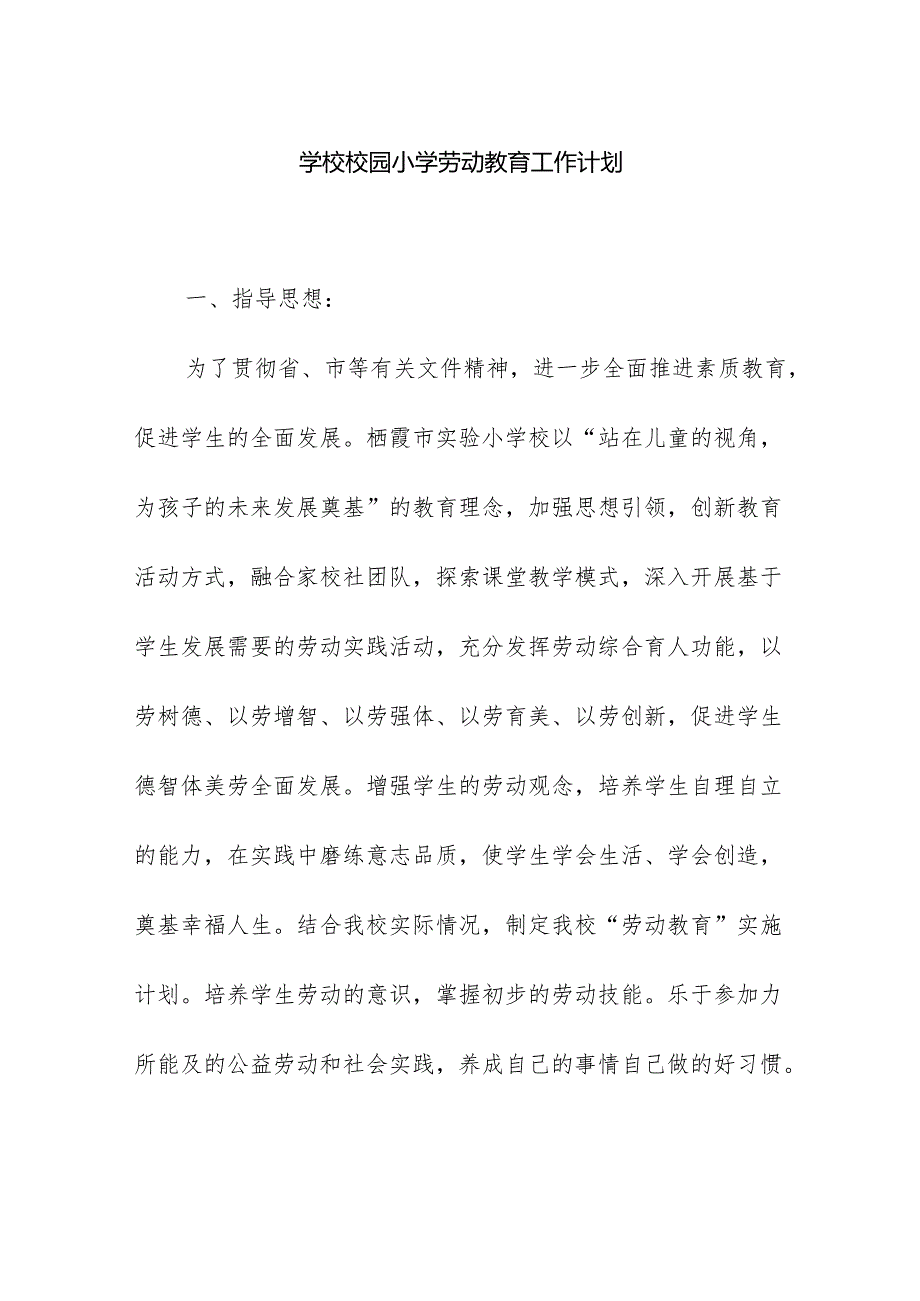 学校校园小学劳动教育工作计划
一、指导思想：
为了贯彻省、市等有关文件精神，进一步全面推进素质教育，
促进学生的全面发展。栖霞市实验小学校以“站在儿童的视角，
为孩子的未来发展奠基”的教育理念，加强思想引领，创新教育
活动方式，融合家校社团队，探索课堂教学模式，深入开展基于
学生发展需要的劳动实践活动，充分发挥劳动综合育人功能，以
劳树德、以劳增智、以劳强体、以劳育美、以劳创新，促进学生
德智体美劳全面发展。增强学生的劳动观念，培养学生自理自立
的能力，在实践中磨练意志品质，使学生学会生活、学会创造，
奠基幸福人生。结合我校实际情况，制定我校“劳动教育”实施
计划。培养学生劳动的意识，掌握初步的劳动技能。乐于参加力
所能及的公益劳动和社会实践，养成自己的事情自己做的好习惯。